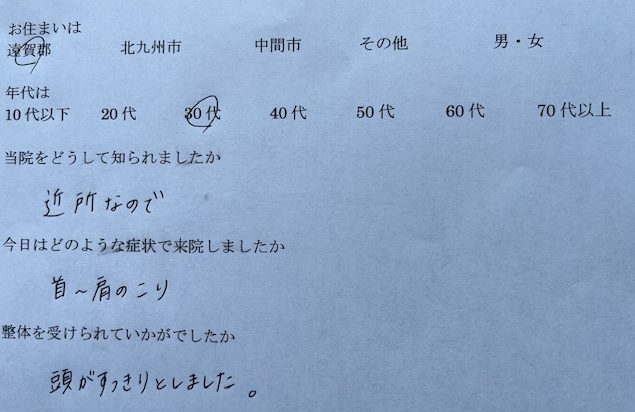 お住まいは
遠賀郡 北九州市 中間市 その他 男・女
年代は
10代以下 20代 30代 40代 50代 60代 70代以上
当院をどうして知られましたか
近所なので
今日はどのような症状で来院しましたか
首～肩のこり
整体を受けられていかがでしたか
頭がすっきりとしました。